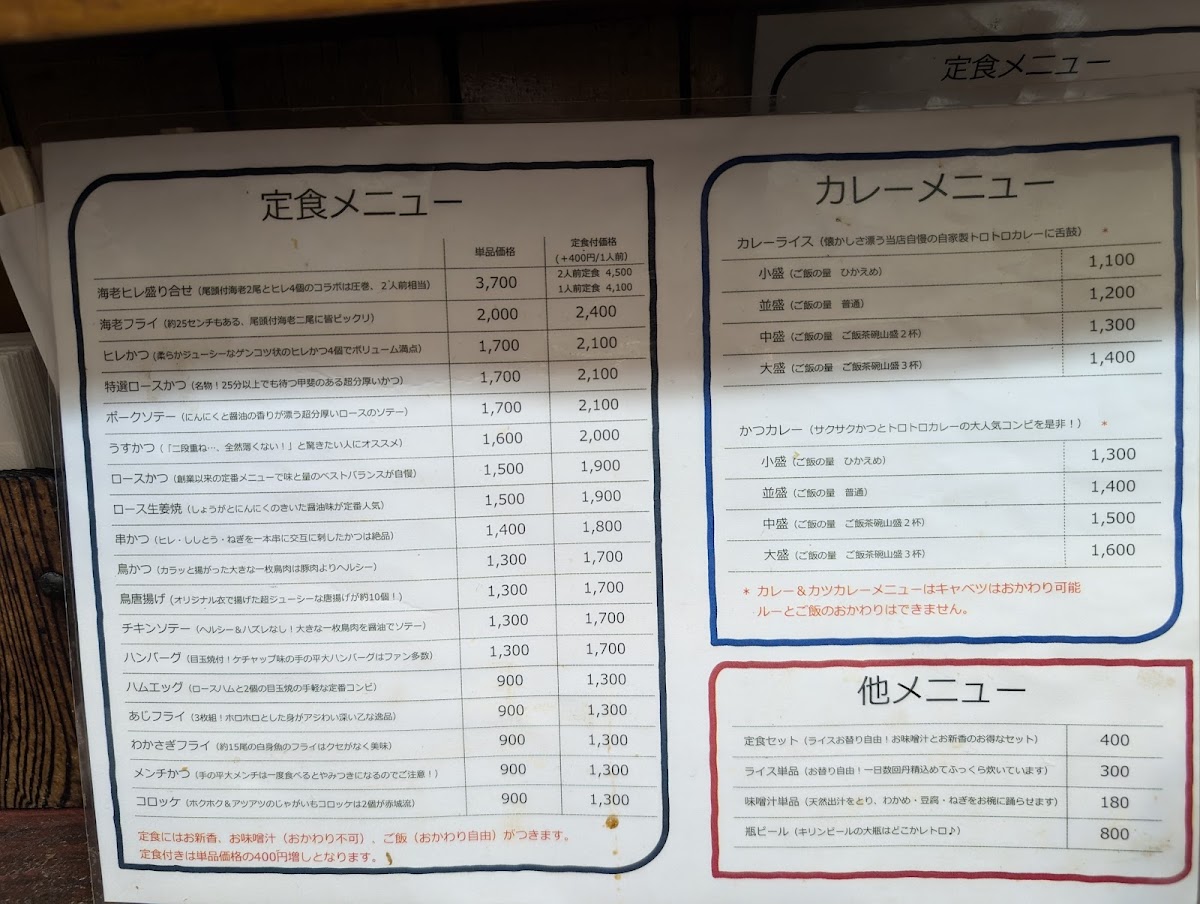 定食メニュー
定食メニュー
単品価格
定食付価格
(+400円/1人前)
海老ヒレ盛り合せ（尾頭付海老2尾とヒレ4個のコラボは圧巻、2人前相当） 3,700 2人前定食 4,500
1人前定食 4,100
海老フライ（約25センチもある、尾頭付海老二尾に皆ビックリ） 2,000 2,400
ヒレかつ（柔らかジューシーなゲンコツ状のヒレかつ4個でボリューム満点） 1,700 2,100
特選ロースかつ（名物！25分以上でも待つ甲斐のある超分厚いかつ） 1,700 2,100
ポークソテー（にんにくと醤油の香りが漂う超分厚いロースのソテー） 1,700 2,100
うすかつ（「二段重ね…、全然薄くない！」と驚きたい人にオススメ） 1,600 2,000
ロースかつ（創業以来の定番メニューで味と量のベストバランスが自慢） 1,500 1,900
ロース生姜焼（しょうがとにんにくのきいた醤油味が定番人気） 1,500 1,900
串かつ（ヒレ・ししとう・ねぎを一本串に交互に刺したかつは絶品） 1,400 1,800
鳥かつ（カラッと揚がった大きな一枚鳥肉は豚肉よりヘルシー） 1,300 1,700
鳥唐揚げ（オリジナル衣で揚げた超ジューシーな唐揚げが約10個！） 1,300 1,700
チキンソテー（ヘルシー＆ハズレなし！大きな一枚鳥肉を醤油でソテー） 1,300 1,700
ハンバーグ（目玉焼付！ケチャップ味の手の平大ハンバーグはファン多数） 1,300 1,700
ハムエッグ（ロースハムと2個の目玉焼の手軽な定番コンビ） 900 1,300
あじフライ（3枚組！ホロホロとした身がアジわい深い乙な逸品） 900 1,300
わかさぎフライ（約15尾の白身魚のフライはクセがなく美味） 900 1,300
メンチかつ（手の平大メンチは一度食べるとやみつきになるのでご注意！） 900 1,300
コロッケ（ホクホク＆アツアツのじゃがいもコロッケは2個が赤城流） 900 1,300
定食にはお新香、お味噌汁（おかわり不可）、ご飯（おかわり自由）がつきます。
定食付きは単品価格の400円増しとなります。
カレーメニュー
カレーライス（懐かしさ漂う当店自慢の自家製トロトロカレーに舌鼓） *
小盛（ご飯の量 ひかえめ） 1,100
並盛（ご飯の量 普通） 1,200
中盛（ご飯の量 ご飯茶碗山盛２杯） 1,300
大盛（ご飯の量 ご飯茶碗山盛３杯） 1,400
かつカレー（サクサクかつとトロトロカレーの大人気コンビを是非！） *
小盛（ご飯の量 ひかえめ） 1,300
並盛（ご飯の量 普通） 1,400
中盛（ご飯の量 ご飯茶碗山盛２杯） 1,500
大盛（ご飯の量 ご飯茶碗山盛３杯） 1,600
* カレー＆カツカレーメニューはキャベツはおかわり可能
ルーとご飯のおかわりはできません。
他メニュー
定食セット（ライスお替り自由！お味噌汁とお新香のお得なセット） 400
ライス単品（お替り自由！一日数回丹精込めてふっくら炊いています） 300
味噌汁単品（天然出汁をとり、わかめ・豆腐・ねぎをお椀に踊らせます） 180
瓶ビール（キリンビールの大瓶はどこかレトロ♪） 800